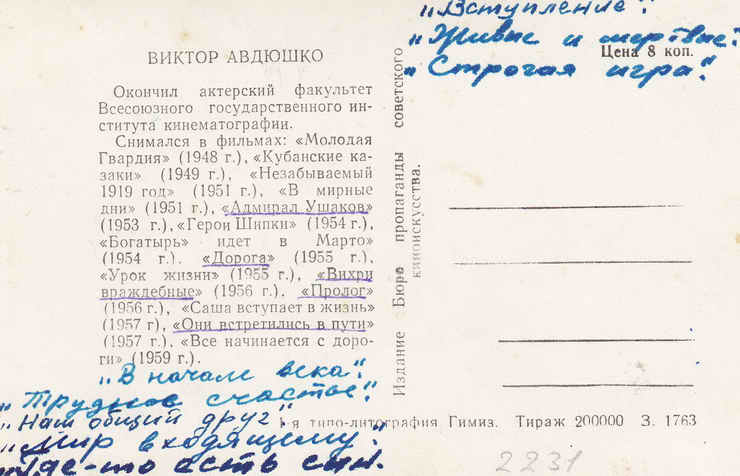 „Вступление".
„Живые и мертвые".
„Строгая игра".
Цена 8 коп.
ВИКТОР АВДЮШКО
Окончил актерский факультет
Всесоюзного государственного ин-
ститута кинематографии.
Снимался в фильмах: «Молодая
Гвардия» (1948 г.), «Кубанские ка-
заки» (1949 г.), «Незабываемый
1919 год» (1951 г.), «В мирные
дни» (1951 г.), «Адмирал Ушаков»
(1953 г.), «Герои Шипки» (1954 г.),
«Богатырь» идет в Марто»
(1954 г.). «Дорога» (1955 г.),
«Урок жизни» (1955 г.), «Вихри
враждебные» (1956 г.), «Пролог»
(1956 г.), «Саша вступает в жизнь»
(1957 г), «Они встретились в пути»
(1957 г.), «Все начинается с доро-
ги» (1959 г.).
Издание Бюро пропаганды советского
киноискусства.
„В начале века".
„Трудное счастье".
„Наш общий друг"
„Мир входящему".
Где-то есть сын.
1-я типо-литография Гимиз. Тираж 200000 З. 1763
2231